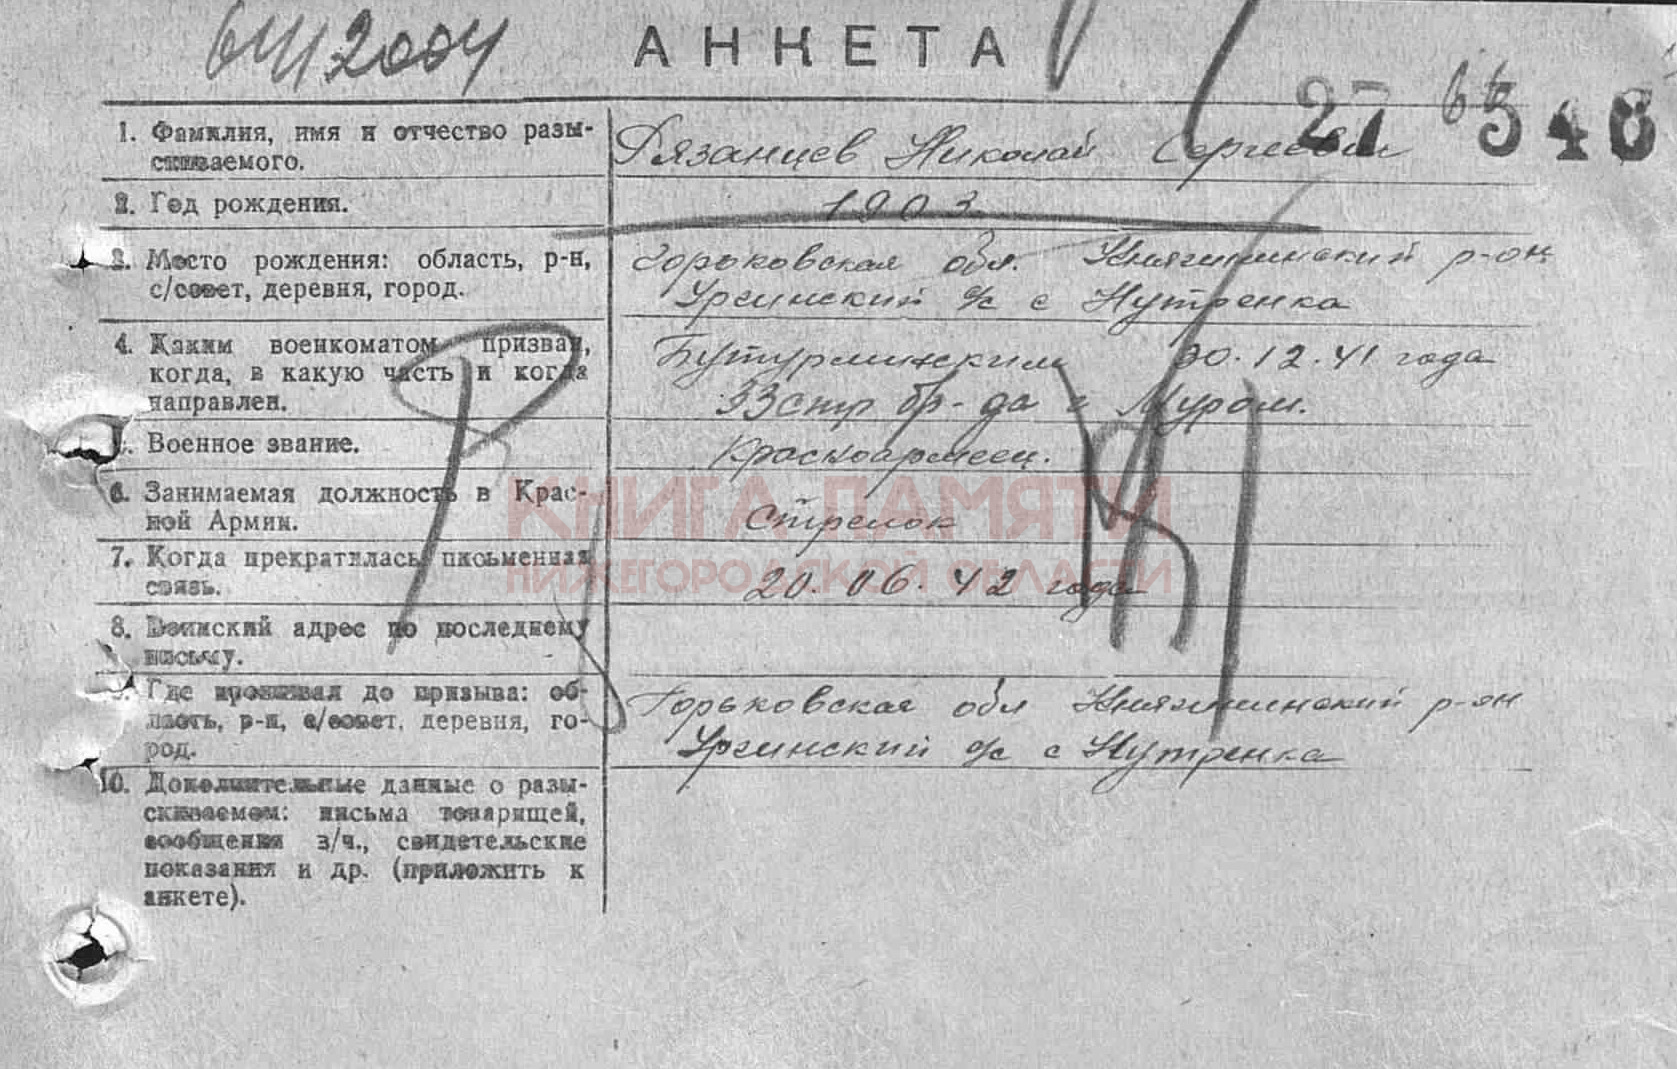 АНКЕТА
27 546
1. Фамилия, имя и отчество разы-
скиваемого.
Рязанцев Николай Сергеевич
2. Год рождения.
1903
3. Место рождения: область, р-н,
с/совет, деревня, город.
Горьковская обл. Княгининский р-он
Ургинский с/с с Нутренка
4. Каким военкоматом призван,
когда, в какую часть и когда
направлен.
Бутурлинским 30.12.41 года
33 стр бр-да г Муром.
5. Военное звание.
Красноармеец.
6. Занимаемая должность в Крас-
ной Армии.
Стрелок
7. Когда прекратилась письменная
связь.
20.06.42 года
8. Воинский адрес по последнему
письму.
9. Где проживал до призыва: об-
ласть, р-н, с/совет, деревня, го-
род.
Горьковская обл Княгининский р-он
Ургинский с/с с Нутренка
10. Дополнительные данные о разы-
скиваемом: письма товарищей,
сообщения з/ч., свидетельские
показания и др. (приложить к
анкете).
КНИГА ПАМЯТИ
НИЖЕГОРОДСКОЙ ОБЛАСТИ